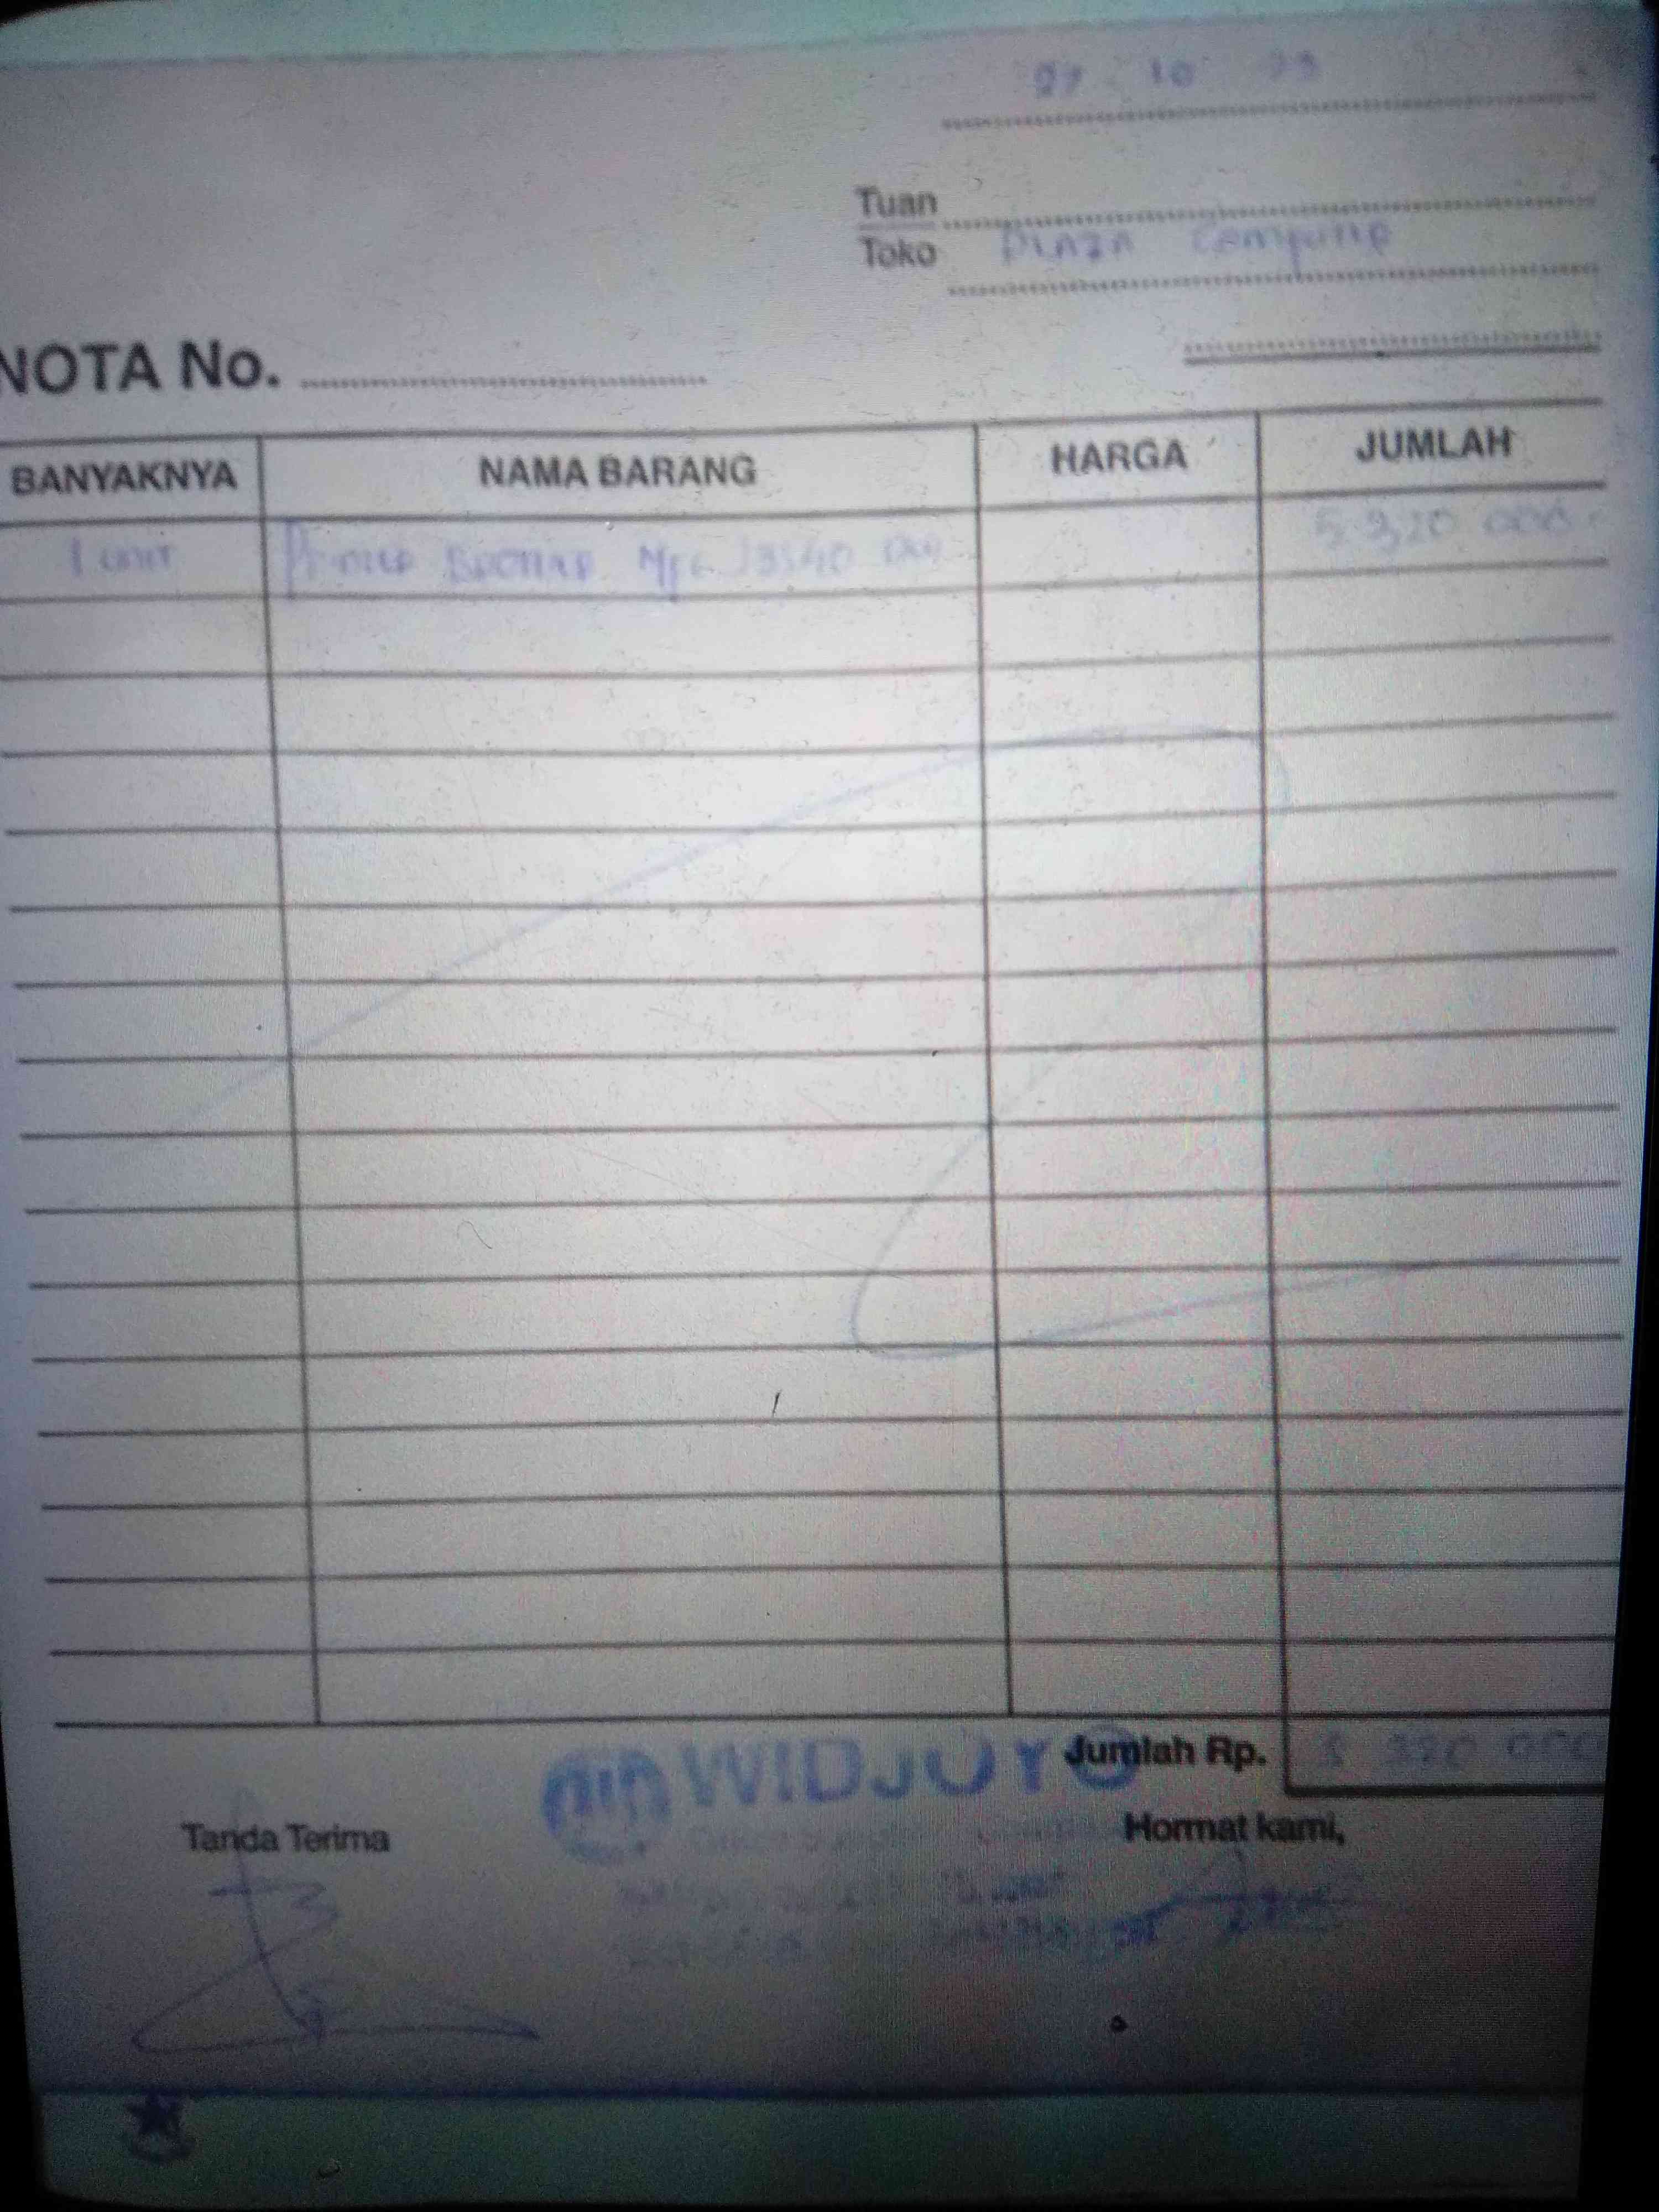 Tuan
Toko PLAZA Computer
NOTA No.
BANYAKNYA NAMA BARANG HARGA JUMLAH
1 unit Printer Brother MFC J3540 DW 5.320 000
WIDJOYO Jumlah Rp. 5 320 000
Tanda Terima Hormat kami,